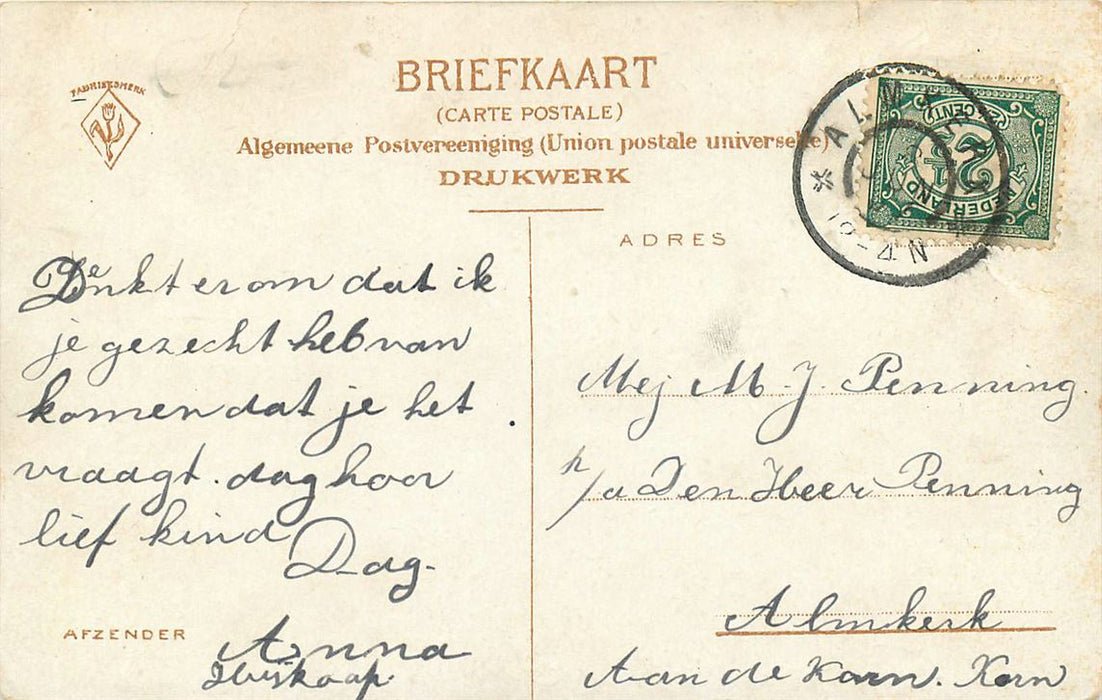 FABRIEKSMERK
BRIEFKAART
(CARTE POSTALE)
Algemeene Postvereeniging (Union postale universelle)
DRUKWERK
ALMKERK
NEDERLAND
2½
CENT
ADRES
Denkt erom dat ik
je gezecht heb van
komen dat je het
vraagt. dag hoor
lief kind
Dag.
AFZENDER
Anna
Mej M. J. Penning.
p/a Den Heer Penning
Almkerk
Aan de Korn. Korn